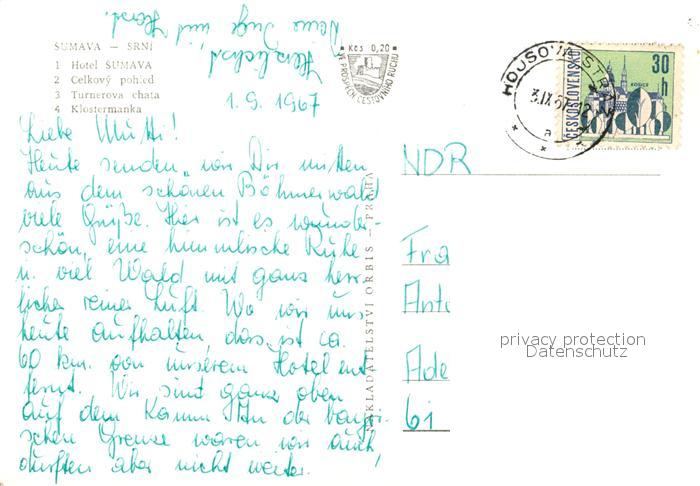 ŠUMAVA — SRNÍ
1 Hotel ŠUMAVA
2 Celkový pohled
3 Turnerova chata
4 Klostermanka
Kčs 0,20
VE PROSPĚCH CESTOVNÍHO RUCHU
3.IX.67
ČESKOSLOVENSKO
KOŠICE
30 h
1.9.1967
Liebe Mutti!
Heute senden wir Dir mitten
aus dem schönen Böhmerwald
viele Grüße. Hier ist es wunder-
schön, eine himmlische Ruhe
u. viel Wald mit ganz herr-
licher reiner Luft. Wo wir uns
heute aufhalten, das ist ca.
60 km. von unserem Hotel ent
fernt. Wir sind ganz oben
auf dem Kamm. An der bayri-
schen Grenze waren wir auch,
durften aber nicht weiter.
Herzlichst
Deine Inge und Horst.
NAKLADATELSTVÍ ORBIS — PRAHA
NDR
Fra
Ant
Ade
61
privacy protection
Datenschutz